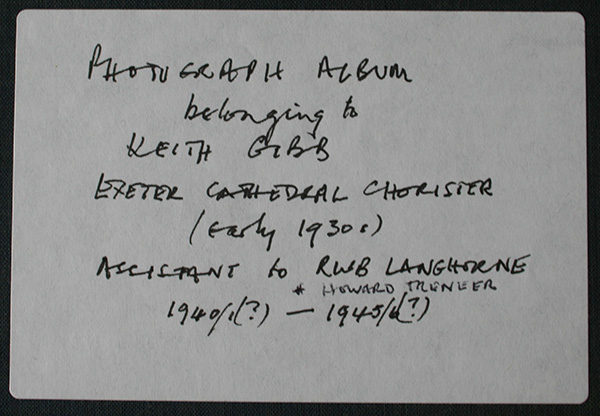 PHOTOGRAPH ALBUM
belonging to
KEITH GIBB
EXETER CATHEDRAL CHORISTER
(early 1930s)
ASSISTANT to RWB LANGHORNE
* HOWARD TRENEER
1940/1(?) — 1945/6(?)